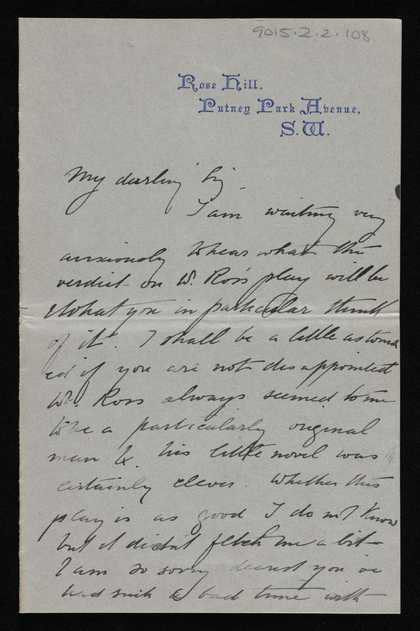 9015.2.2.108
Rose Hill.
Putney Park Avenue,
S.W.
My darling
I am waiting very
anxiously to hear what the
verdict on W. Ross' play will be
& what you in particular think
of it. I shall be a little astonish
ed if you are not disappointed
W. Ross always seemed to me
to be a particularly original
man & his little novel was
certainly clever. Whether this
play is as good I do not know
but it didn't fetch me a bit -
I am so sorry dearest you've
had such a bad time with